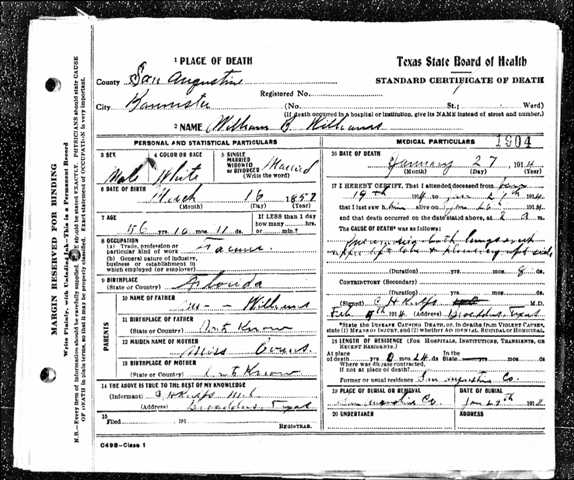 1 PLACE OF DEATH
Texas State Board of Health
County San Augustine
STANDARD CERTIFICATE OF DEATH
Registered No.
City Bannister (No. St.; Ward)
(If death occurred in a hospital or institution, give its NAME instead of street and number.)
2 NAME William B. Williams
1904
PERSONAL AND STATISTICAL PARTICULARS
MEDICAL PARTICULARS
3 SEX Male
4 COLOR OR RACE White
5 SINGLE MARRIED WIDOWED or DIVORCED Married
(Write the word)
6 DATE OF BIRTH March 16 1857
(Month) (Day) (Year)
7 AGE
56 yrs. 10 mos. 11 ds.
If LESS than 1 day how many hrs. or min.?
8 OCCUPATION
(a) Trade, profession or particular kind of work Farmer
(b) General nature of industry, business or establishment in which employed (or employer)
9 BIRTHPLACE
(State or Country) Florida
PARENTS
10 NAME OF FATHER Williams
11 BIRTHPLACE OF FATHER
(State or Country) Don't Know
12 MAIDEN NAME OF MOTHER
Miss
13 BIRTHPLACE OF MOTHER
(State or Country) Don't Know
14 THE ABOVE IS TRUE TO THE BEST OF MY KNOWLEDGE
(Informant) M.D.
(Address) Broaddus, Texas
15
Filed 191
REGISTRAR.
C49B-Class 1
16 DATE OF DEATH
January 27 1914
(Month) (Day) (Year)
17 I HEREBY CERTIFY, That I attended deceased from Jan
19th 1914 to Jan 27th 1914
that I last saw him alive on Jan 26 1914
and that death occurred on the date stated above, at 2 a m.
The CAUSE OF DEATH was as follows:
Pneumonia both lungs
(Duration) yrs. mos. 8 ds.
CONTRIBUTORY (Secondary)
(Duration) yrs. mos. ds.
(Signed) M.D.
Feb 191 4 (Address) Broaddus, Texas
*State the DISEASE CAUSING DEATH, or, in deaths from VIOLENT CAUSES, state (1) MEANS OF INJURY; and (2) whether ACCIDENTAL, SUICIDAL or HOMICIDAL.
18 LENGTH OF RESIDENCE (FOR HOSPITALS, INSTITUTIONS, TRANSIENTS, OR RECENT RESIDENTS.)
At place of death yrs. mos. ds. In the State yrs. mos. ds.
Where was disease contracted,
if not at place of death?
Former or usual residence San Augustine Co.
19 PLACE OF BURIAL OR REMOVAL
DATE OF BURIAL
San Augustine Co. Jan 191
20 UNDERTAKER
ADDRESS
MARGIN RESERVED FOR BINDING
Write Plainly, with Unfading Ink—This is a Permanent Record
N.B.—Every item of information should be carefully supplied. AGE should be stated EXACTLY. PHYSICIANS should state CAUSE
OF DEATH in plain terms, so that it may be properly classified. Exact statement of OCCUPATION is very important.